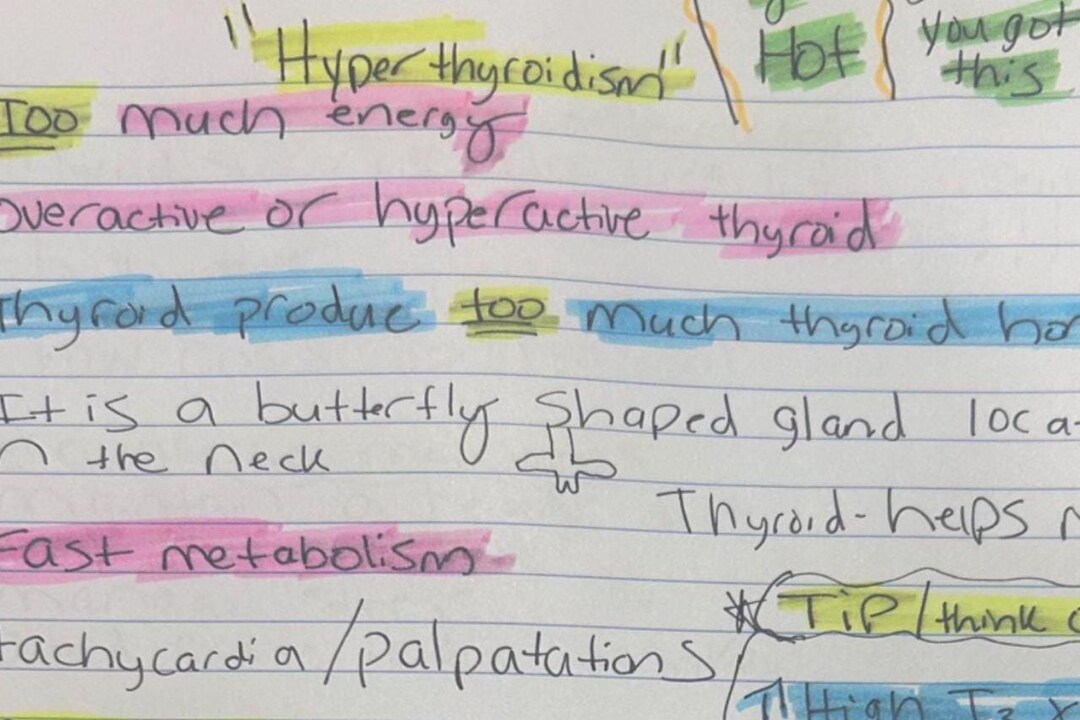 "Hyperthyroidism"
Hot
you got
this
Too much energy
overactive or hyperactive thyroid
Thyroid produc too much thyroid hor
It is a butterfly shaped gland loca
the neck
Thyroid-helps
Fast metabolism
*TiP/think
tachycardia/palpatations
↑High T3